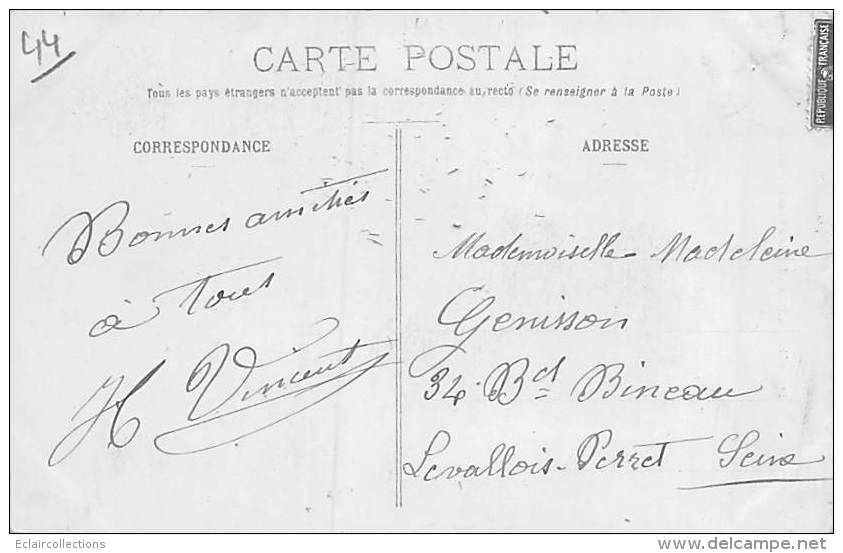 44
CARTE POSTALE
Tous les pays étrangers n'acceptent pas la correspondance au recto (Se renseigner à la Poste)
CORRESPONDANCE
ADRESSE
RÉPUBLIQUE FRANÇAISE
Bonnes amitiés
à Tous
H Vincent
Mademoiselle Madeleine
Genisson
34 Bd Bineau
Levallois-Perret Seine
Eclaircollections
© delcampe.net